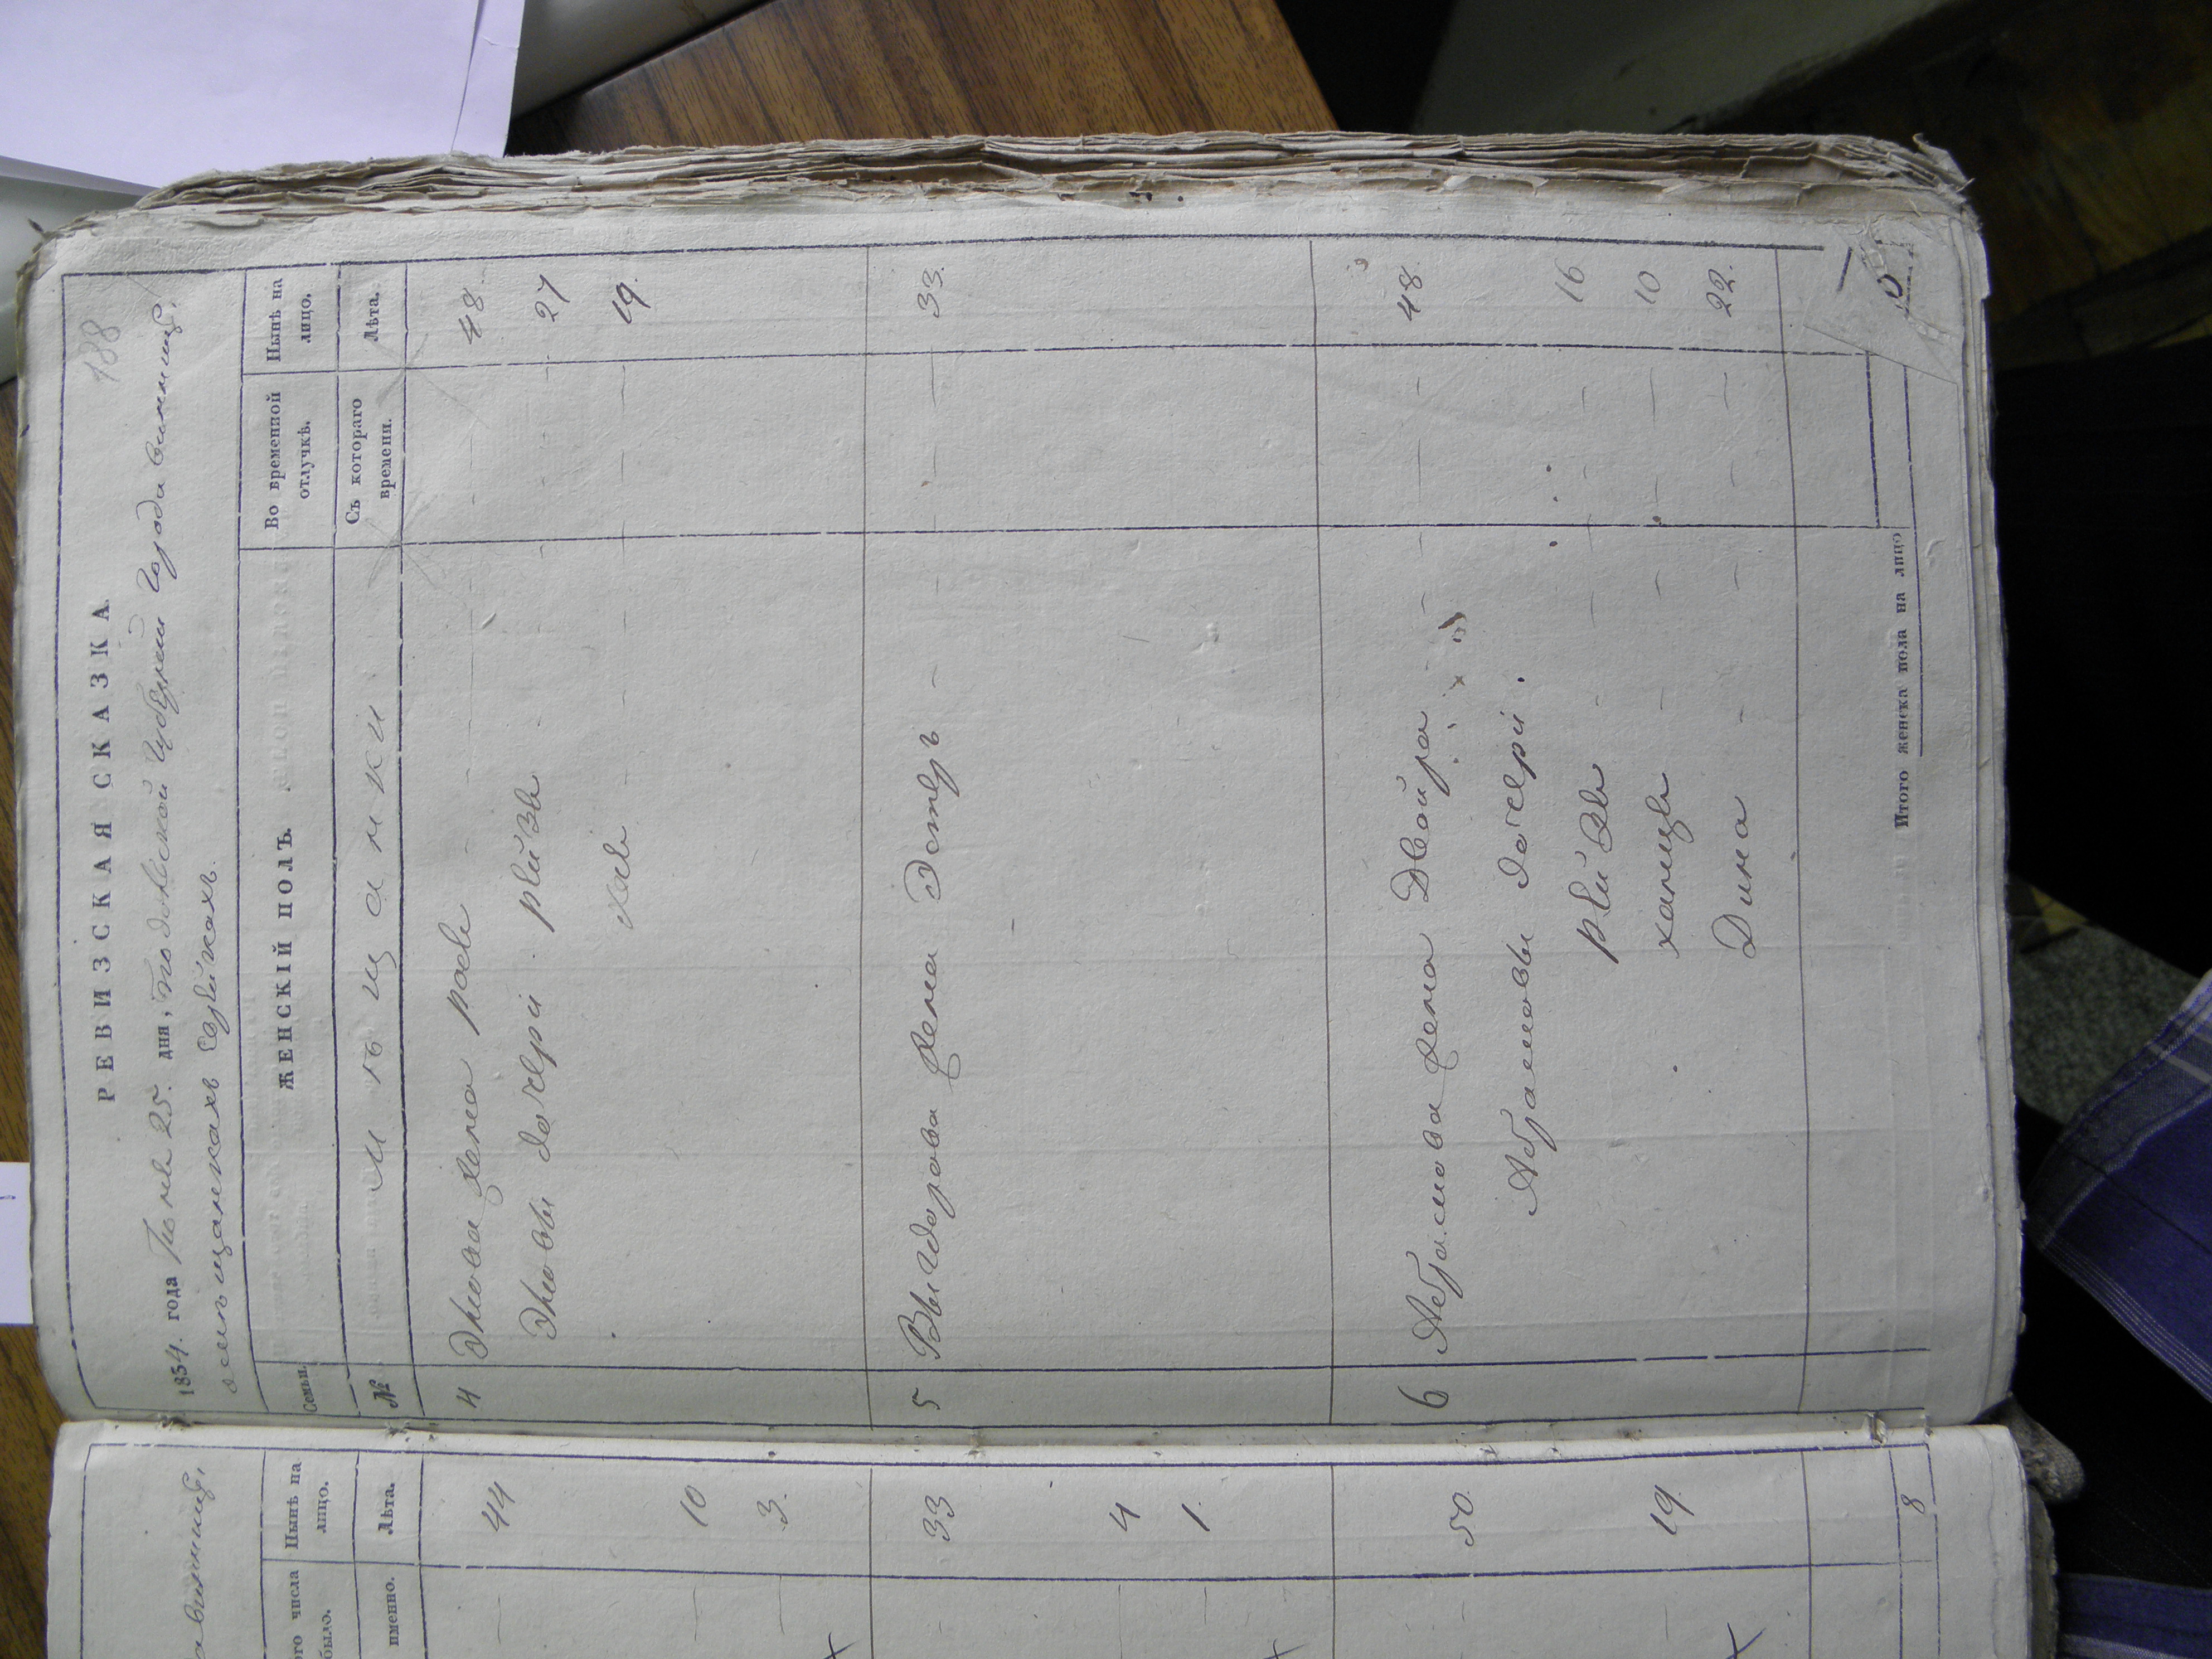 188
РЕВИЗСКАЯ СКАЗКА
1854. года Іюня 25. дня, Подольской Губерніи Города Винницы,
о мѣщанкахъ Еврейкахъ.
Семьи. ЖЕНСКІЙ ПОЛЪ. Во временной отлучкѣ. Нынѣ на лицо.
№ Мѣщанки Съ котораго времени. Лѣта.
4 жена 48.
дочери Рейзя 27
Хая 19.
5 жена Эстеръ 33.
6 Абрамова жена Двойра 48.
Абрамовы дочери
Рейзя 16
Ханця 10
Дина 22.
Итого женска пола на лицо
Винницы,
ого числа было. Нынѣ на лицо.
именно. Лѣта.
44
10
3.
33
4
1.
50.
19.
8